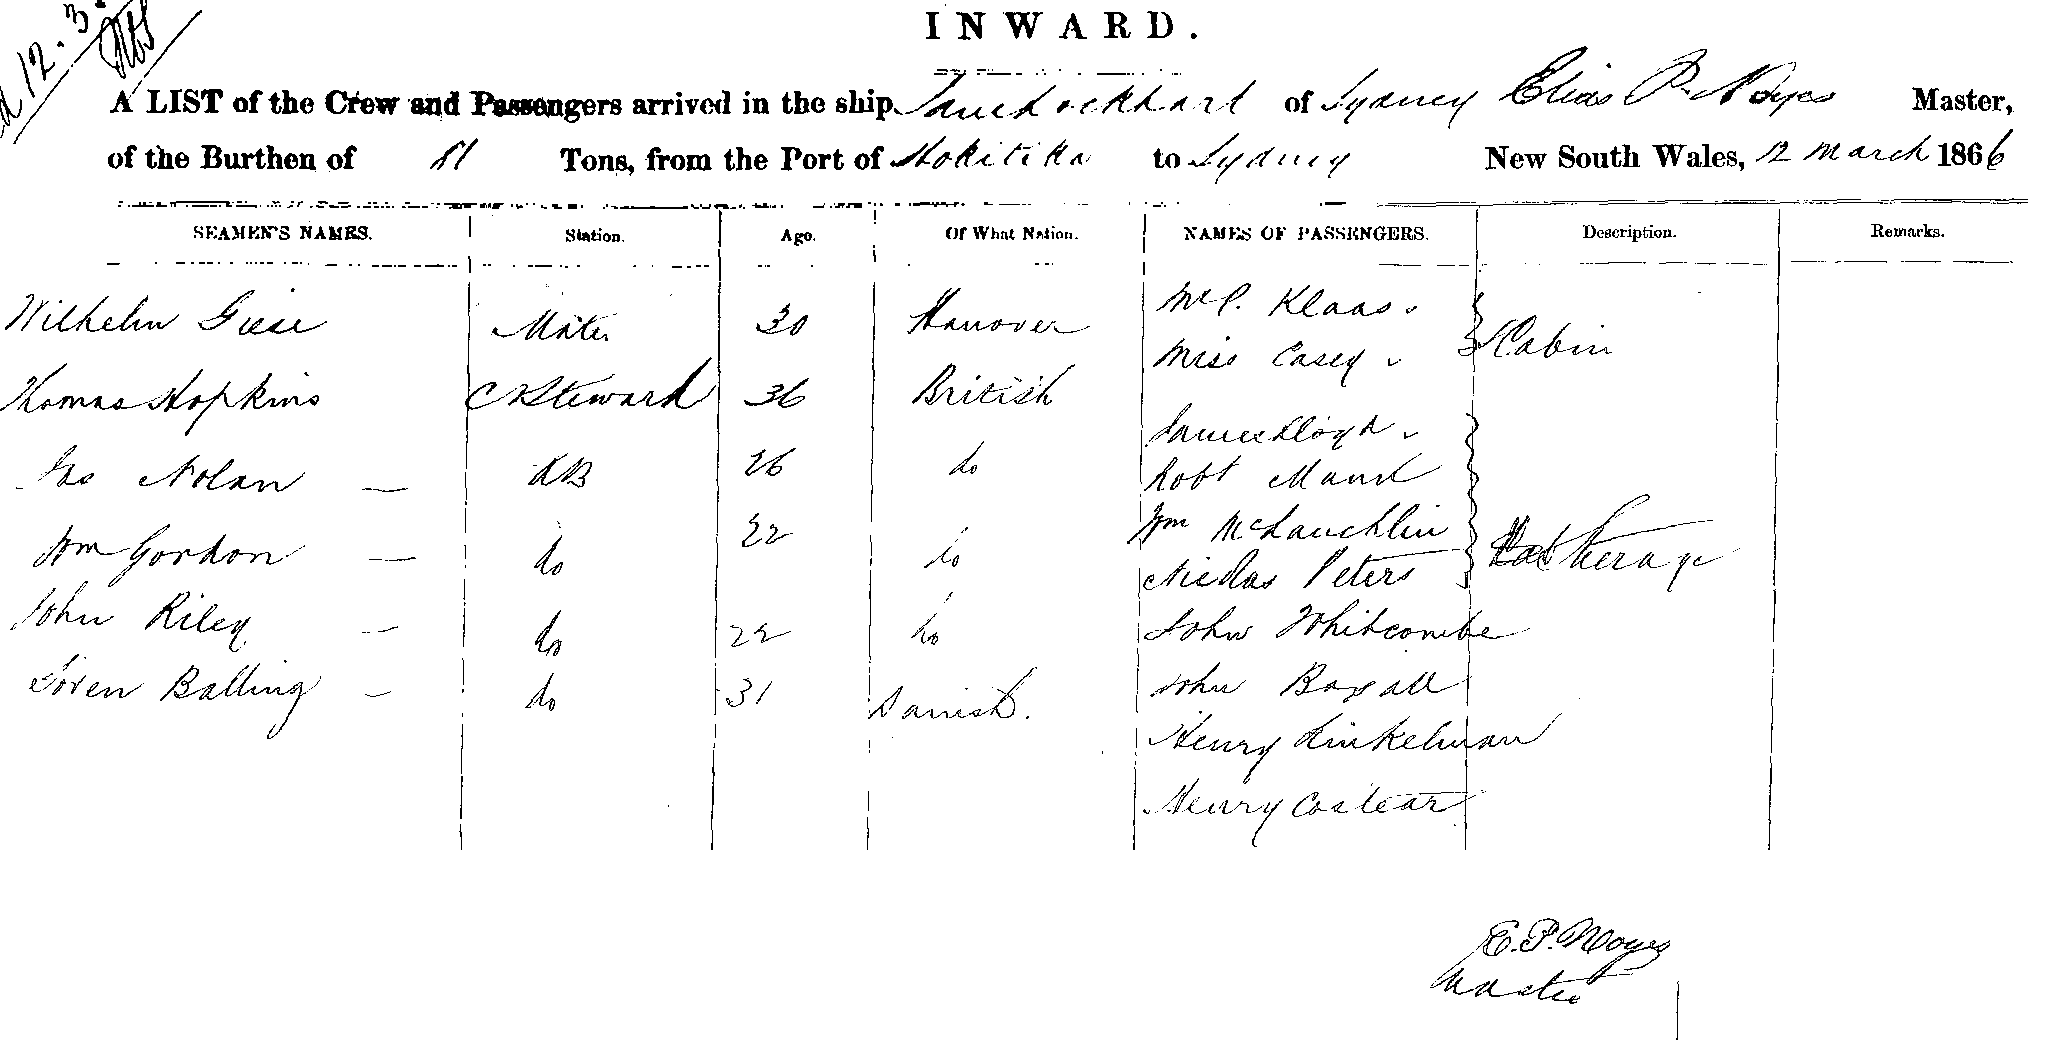 12.3.
INWARD.
A LIST of the Crew and Passengers arrived in the ship Jane Lockhart of Sydney Elias P. Noyes Master,
of the Burthen of 81 Tons, from the Port of Hokitika to Sydney New South Wales, 12 March 1866
SEAMEN'S NAMES. Station. Age. Of What Nation. NAMES OF PASSENGERS. Description. Remarks.
Wilhelm Giese Mate 30 Hanover Klaas
Miss Casey Cabin
Thomas Hopkins Steward 36 British
James Lloyd
Jas Nolan AB 26 do Robt Maund
Wm McLauchlin
Wm Gordon do 22 do Nicolas Peters Steerage
John Riley do 22 do John Whitcombe
Soren Balling do 31 Danish. John Boxall
Henry Kinkelman
Henry Costear
E. P. Noyes
Master